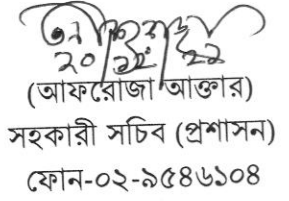 ২০ ১২ ২২
(আফরোজা আক্তার)
সহকারী সচিব (প্রশাসন)
ফোন-০২-৯৫৪৬১০৪